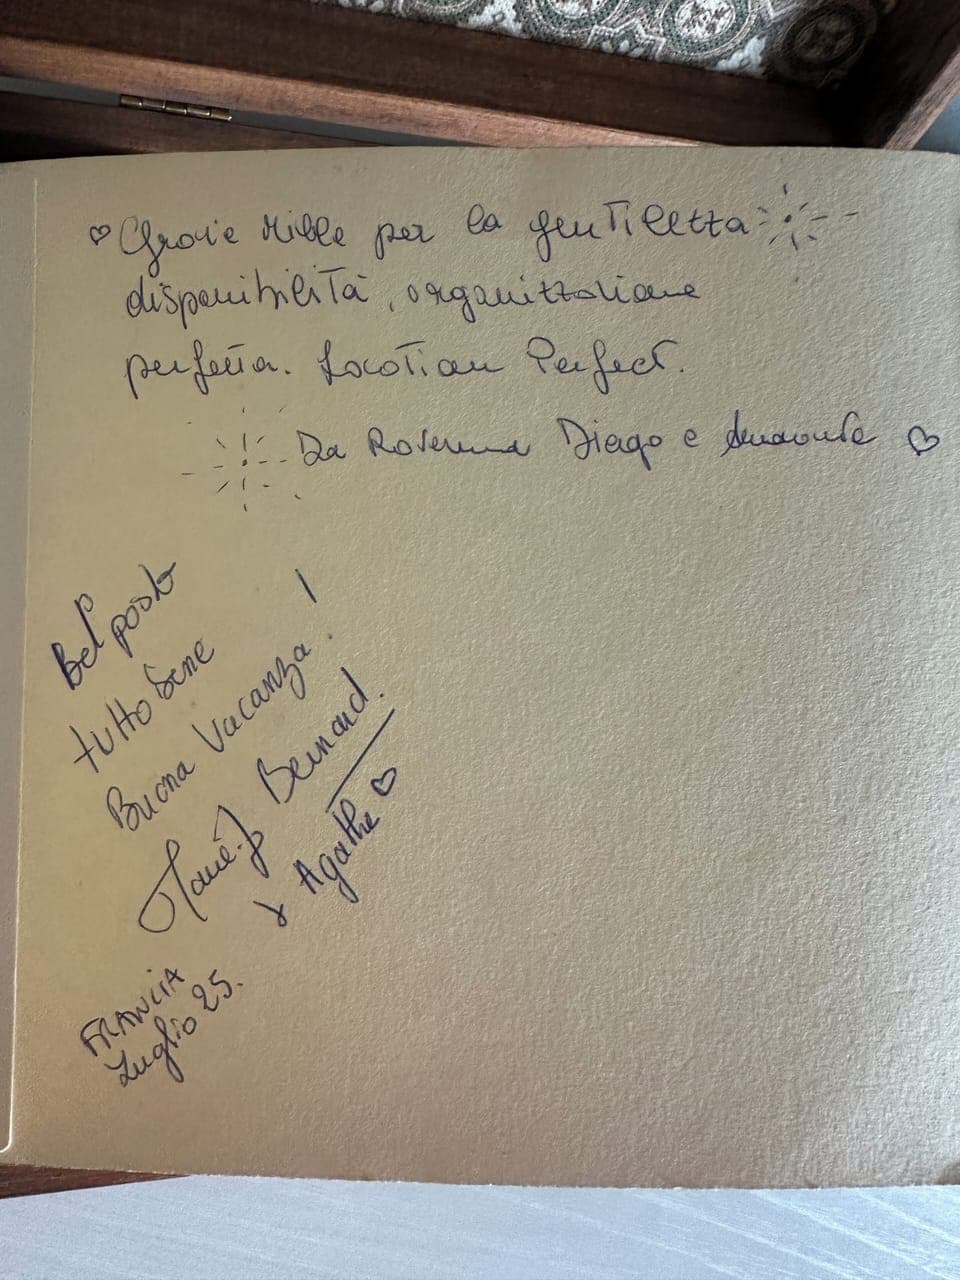 Grazie Mille per la gentilezza
disponibilità, organizzazione
perfetta. Location Perfect.
Da Diego e
Bel posto
tutto bene
Buona Vacanza !
Bernard.
Agathe
FRANCIA
Luglio 25.